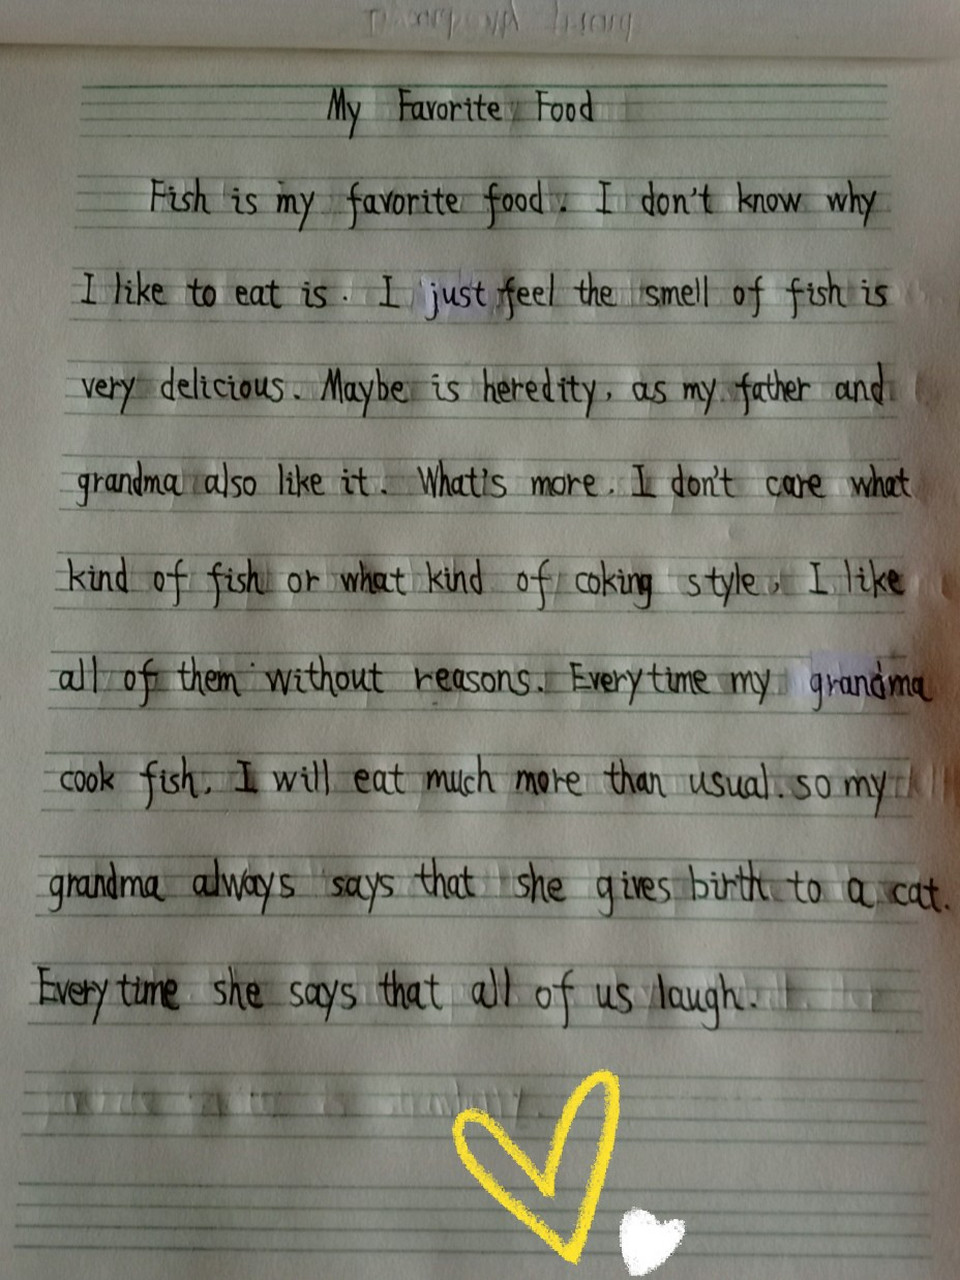 My Favorite Food
Fish is my favorite food. I don't know why
I like to eat is. I just feel the smell of fish is
very delicious. Maybe is heredity, as my father and
grandma also like it. What's more. I don't care what
kind of fish or what kind of coking style, I like
all of them without reasons. Everytime my grandma
cook fish, I will eat much more than usual. so my
grandma always says that she gives birth to a cat.
Every time she says that all of us laugh.